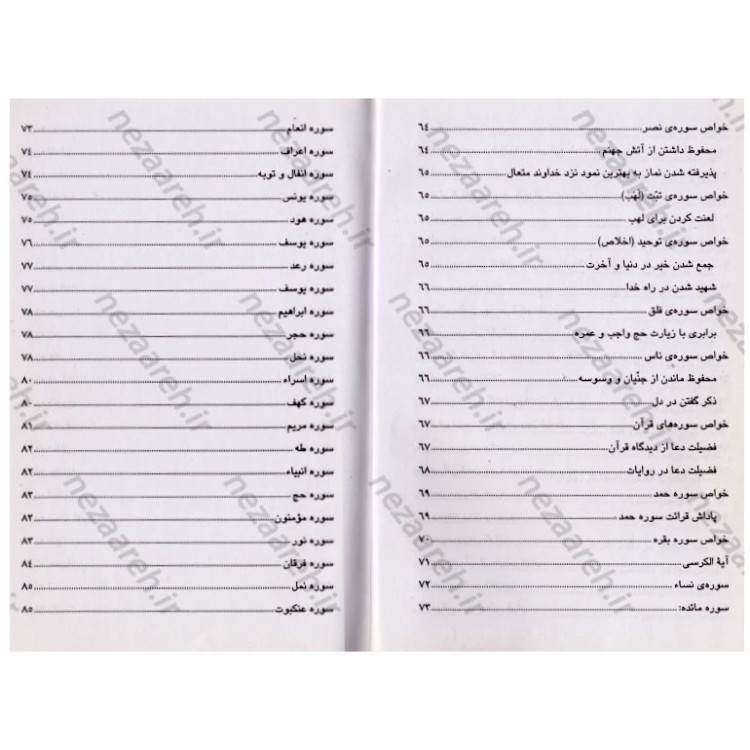 خواص سوره‌ی نصر ۶۴
محفوظ داشتن از آتش جهنم ۶۴
پذیرفته شدن نماز به بهترین نمود نزد خداوند متعال ۶۵
خواص سوره‌ی تبّت (لهب) ۶۵
لعنت کردن برای لهب ۶۵
خواص سوره‌ی توحید (اخلاص) ۶۵
جمع شدن خیر در دنیا و آخرت ۶۵
شهید شدن در راه خدا ۶۶
خواص سوره‌ی فلق ۶۶
برابری با زیارت حج واجب و عمره ۶۶
خواص سوره‌ی ناس ۶۶
محفوظ ماندن از جنّیان و وسوسه ۶۶
ذکر گفتن در دل ۶۷
خواص سوره‌های قرآن ۶۷
فضیلت دعا از دیدگاه قرآن ۶۷
فضیلت دعا در روایات ۶۸
خواص سوره حمد ۶۹
پاداش قرائت سوره حمد ۶۹
خواص سوره بقره ۷۰
آیة الکرسی ۷۱
سوره‌ی نساء ۷۲
سوره مائده: ۷۳
سوره انعام ۷۳
سوره اعراف ۷۴
سوره انفال و توبه ۷۴
سوره یونس ۷۵
سوره هود ۷۵
سوره یوسف ۷۶
سوره رعد ۷۷
سوره یوسف ۷۷
سوره ابراهیم ۷۸
سوره حجر ۷۸
سوره نحل ۷۸
سوره اسراء ۸۰
سوره کهف ۸۰
سوره مریم ۸۱
سوره طه ۸۲
سوره انبیاء ۸۲
سوره حج ۸۳
سوره مؤمنون ۸۳
سوره نور ۸۳
سوره فرقان ۸۴
سوره نمل ۸۵
سوره عنکبوت ۸۵
nezaareh.ir